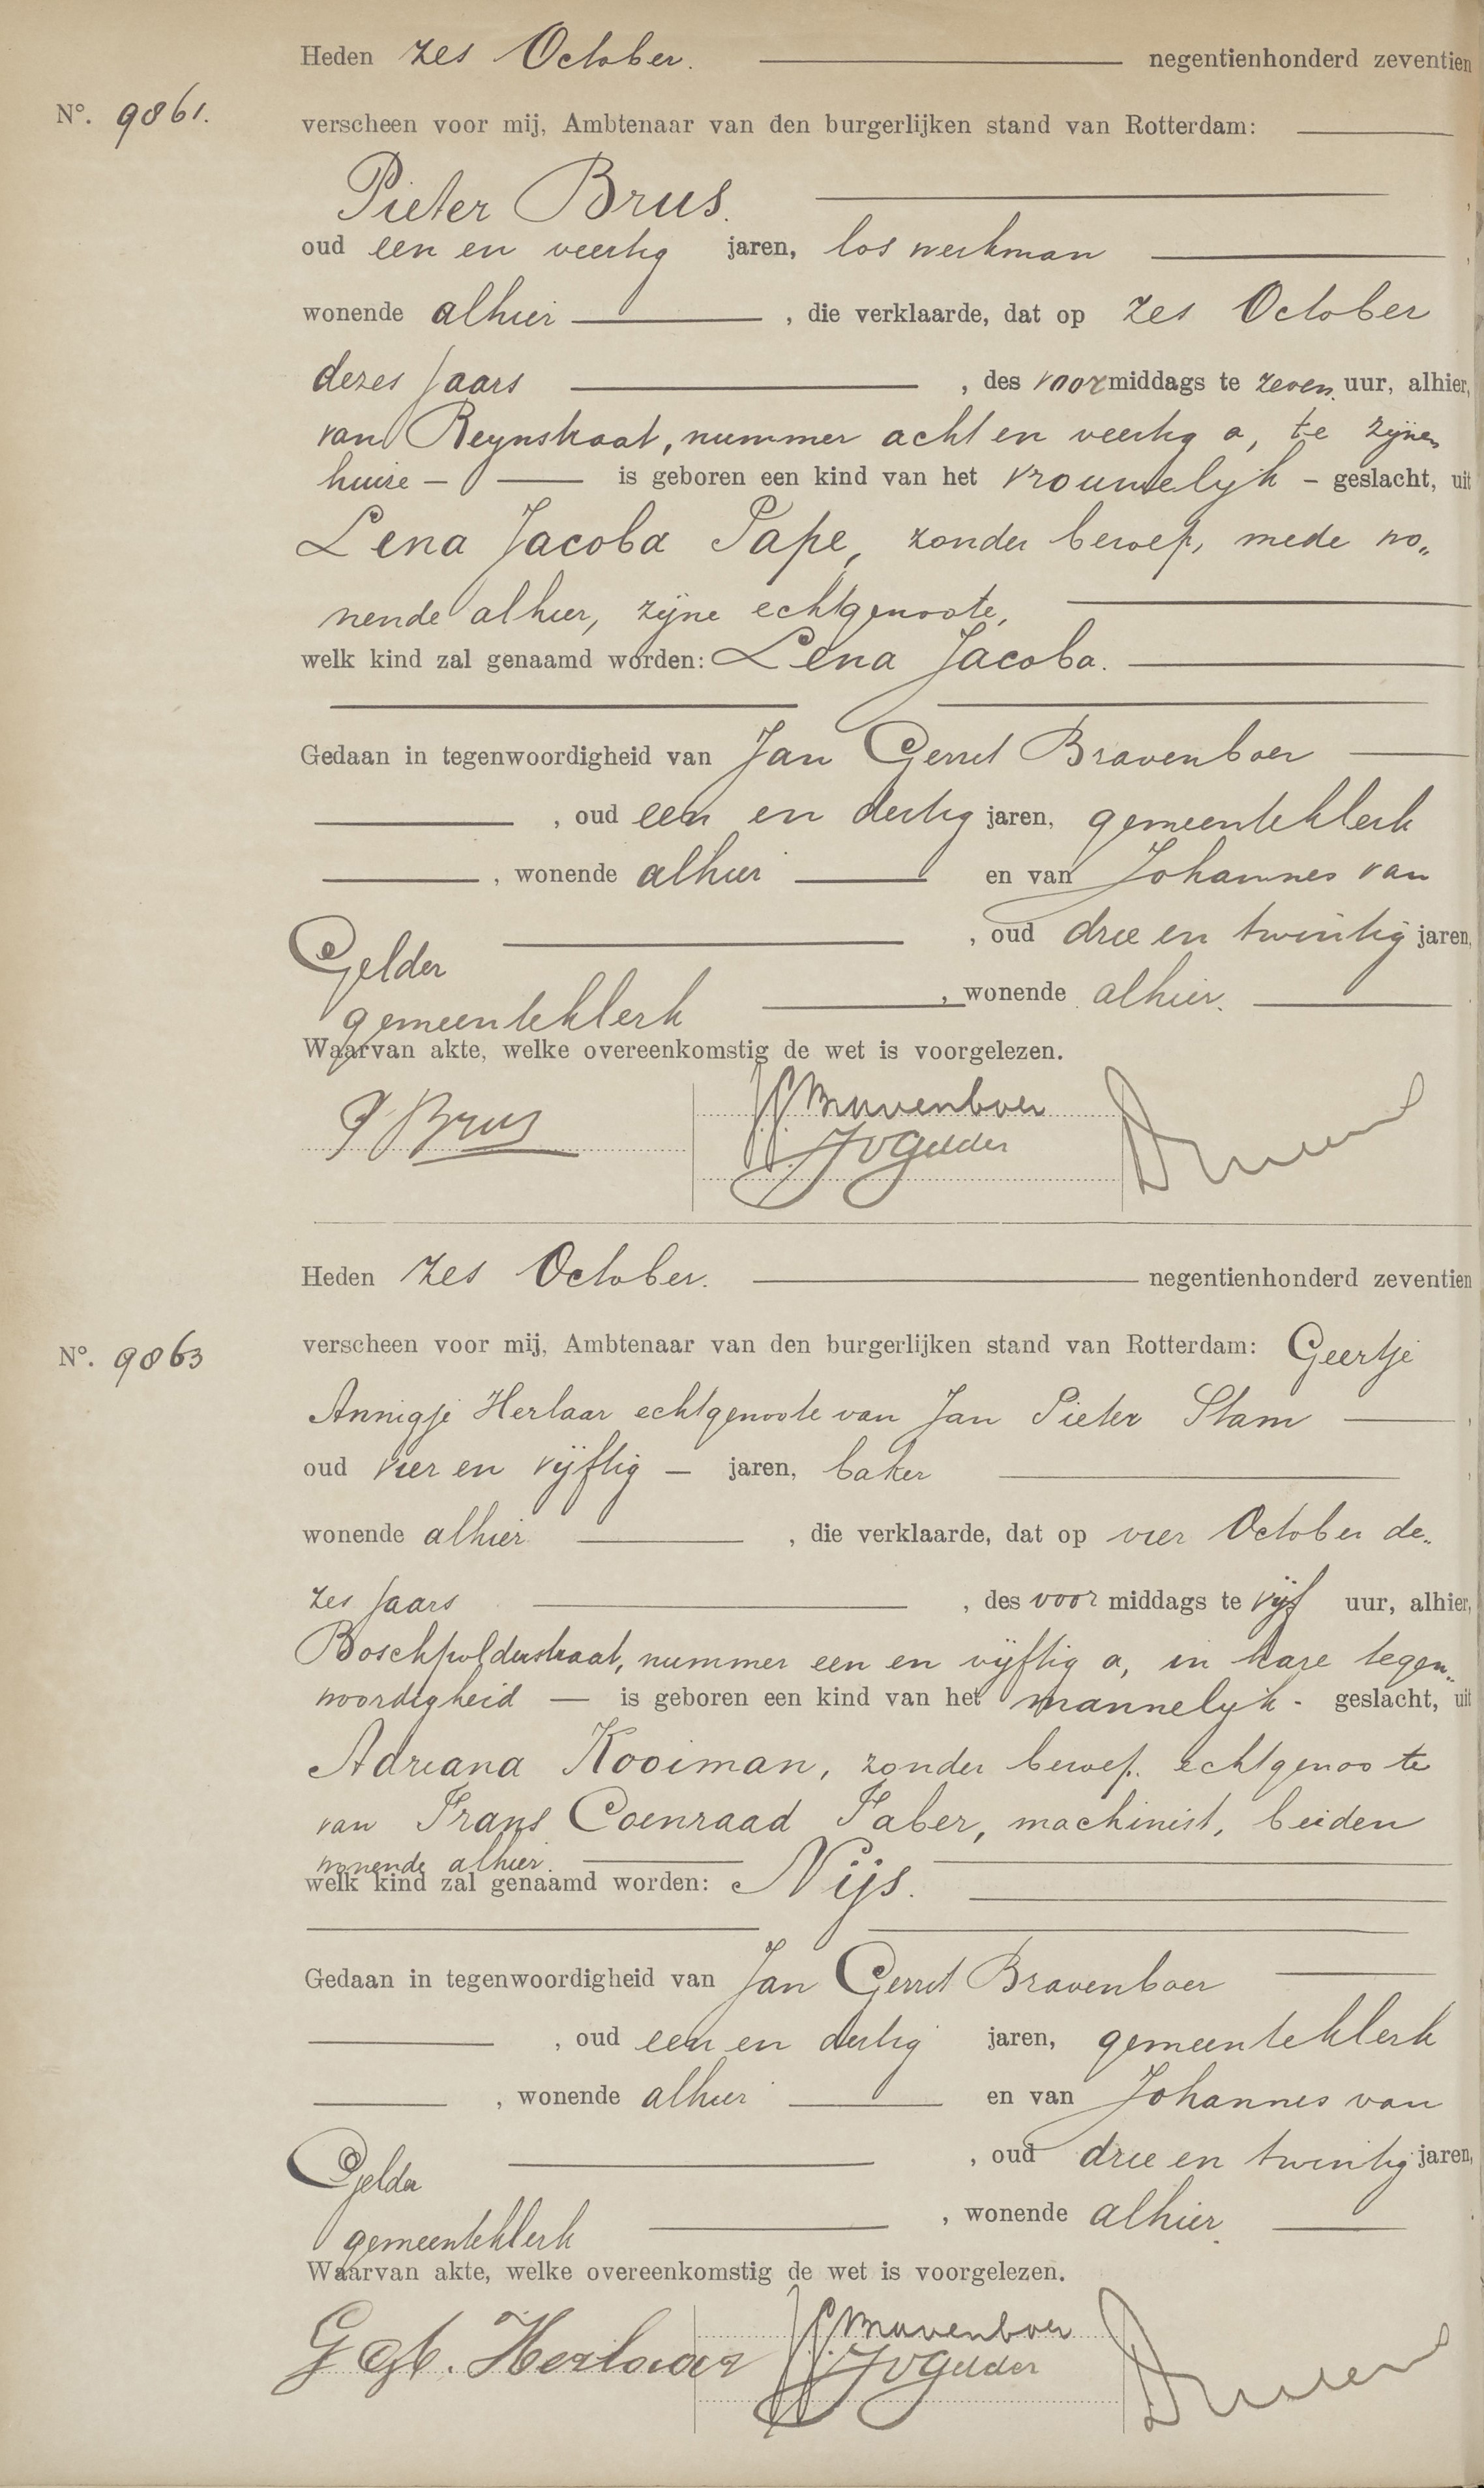 Heden zes October. negentienhonderd zeventien
N°. 9861. verscheen voor mij, Ambtenaar van den burgerlijken stand van Rotterdam:
Pieter Brus.
oud een en veertig jaren, los werkman
wonende alhier , die verklaarde, dat op zes October
dezes jaars , des voormiddags te zeven uur, alhier,
van Reynstraat, nummer acht en veertig a, te zijnen
huize – is geboren een kind van het vrouwelijk – geslacht, uit
Lena Jacoba Pape, zonder beroep, mede wo„
nende alhier, zijne echtgenoote,
welk kind zal genaamd worden: Lena Jacoba.
Gedaan in tegenwoordigheid van Jan Gerret Bravenboer
, oud een en dertig jaren, gemeenteklerk
, wonende alhier en van Johannes van
Gelder , oud drie en twintig jaren,
gemeenteklerk , wonende alhier.
Waarvan akte, welke overeenkomstig de wet is voorgelezen.
P Brus JG Bravenboer
JvGelder
Heden zes October. negentienhonderd zeventien
N°. 9863 verscheen voor mij, Ambtenaar van den burgerlijken stand van Rotterdam: Geertje
Annigje Herlaar echtgenoote van Jan Pieter Stam
oud vier en vijftig – jaren, baker
wonende alhier , die verklaarde, dat op vier October de„
zes jaars , des voor middags te vijf uur, alhier,
Boschpolderstraat, nummer een en vijftig a, in hare tegen„
woordigheid – is geboren een kind van het mannelijk - geslacht, uit
Adriana Kooiman, zonder beroep, echtgenoote
van Frans Coenraad Faber, machinist, beiden
wonende alhier.
welk kind zal genaamd worden: Nijs.
Gedaan in tegenwoordigheid van Jan Gerret Bravenboer
, oud een en dertig jaren, gemeenteklerk
, wonende alhier en van Johannes van
Gelder , oud drie en twintig jaren,
gemeenteklerk , wonende alhier
Waarvan akte, welke overeenkomstig de wet is voorgelezen.
Herlaar JG Bravenboer
JvGelder